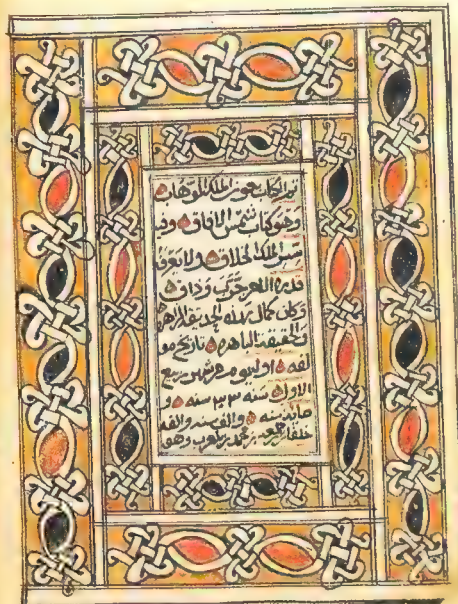 تم الكتاب بعون الملك الوهاب
وهو كتاب شمس الافاق وفيه
سر الملك الخلاق ولا يعرف
قدره الا من جرب وذاق
وكان كمال هذه الحديقة الزاهرة
والحقيقة الباهرة تاريخ مو
لفه اول يوم من شهر ربيع
الاول سنه ٣٣ سنه و
مائة سنه والف سنه والفه
محمد وهو